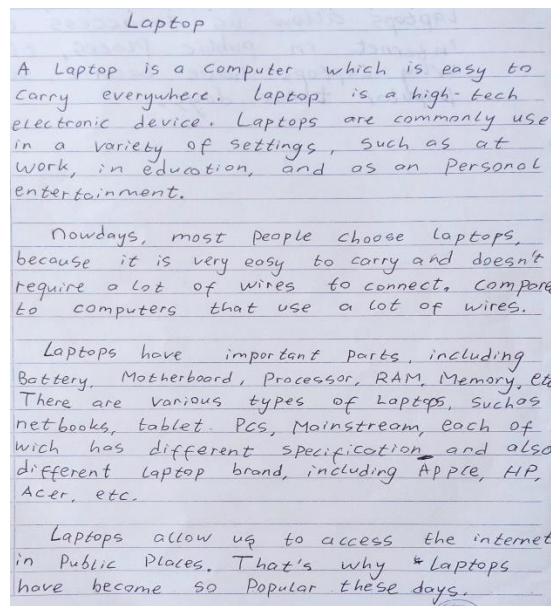 Laptop
A Laptop is a computer which is easy to
carry everywhere. laptop is a high-tech
electronic device. Laptops are commonly use
in a variety of settings, such as at
work, in education, and as an personal
entertainment.
nowdays, most people choose laptops,
because it is very easy to carry and doesn't
require a lot of wires to connect. Compare
to computers that use a lot of wires.
Laptops have important parts, including
Battery, Motherboard, Processor, RAM, Memory, etc
There are various types of Laptops, suchas
netbooks, tablet PCs, Mainstream, each of
wich has different specification and also
different laptop brand, including Apple, HP,
Acer, etc.
Laptops allow us to access the internet
in Public Places. That's why laptops
have become so Popular these days.